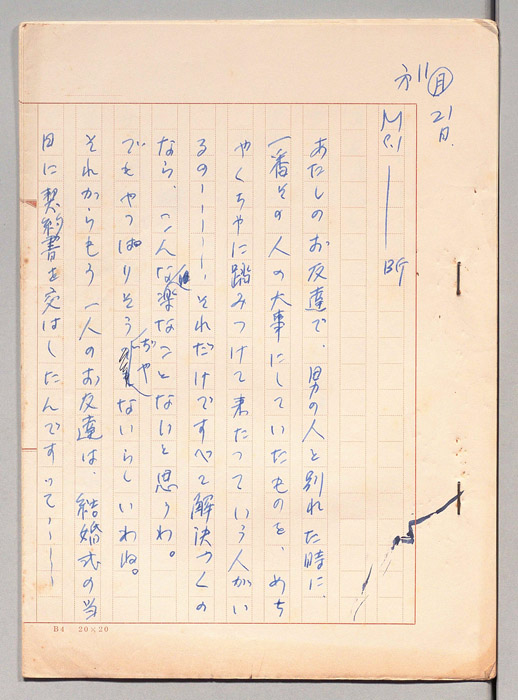 11月
21日.
M
BG
あたしのお友達で、男の人と別れた時に、
一番その人の大事にしていたものを、めち
やくちやに踏みつけて来たつていう人がい
るの－－－－、それだけですべて解決つくの
なら、こんな楽なことないと思うわ。
でもやつぱりそうぢやないらしいわね。
それからもう一人のお友達は、結婚式の当
日に契約書を交はしたんですつて－－－－
B4 20×20